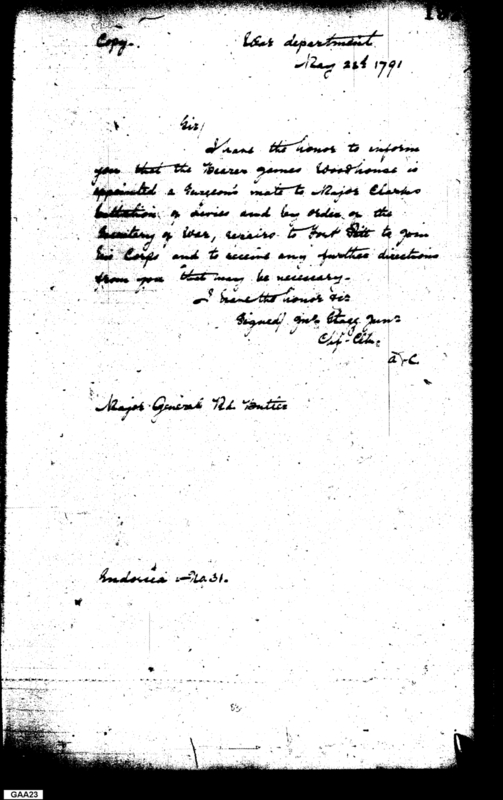 Copy.
War department
May 28th 1791
Sir/
I have the honor to inform
you that the Bearer James Woodhouse is
appointed a Surgeon's mate to Major Clarks
battalion of levies and by order of the
Secretary of War, repairs to Fort Pitt to join
his Corps and to receive any further directions
from you that may be necessary.
I have the honor &c
Signed/ Jno Stagg Junr
Chf. Clk.
Major General Rd. Butler
No. 31.
GAA23